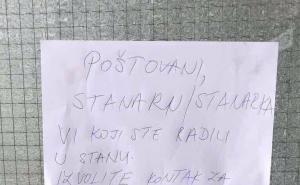 POŠTOVANI,
STANARN/STANARKA
VI KOJI STE RADILI
U STANU.
IZVOLITE KONTAK ZA